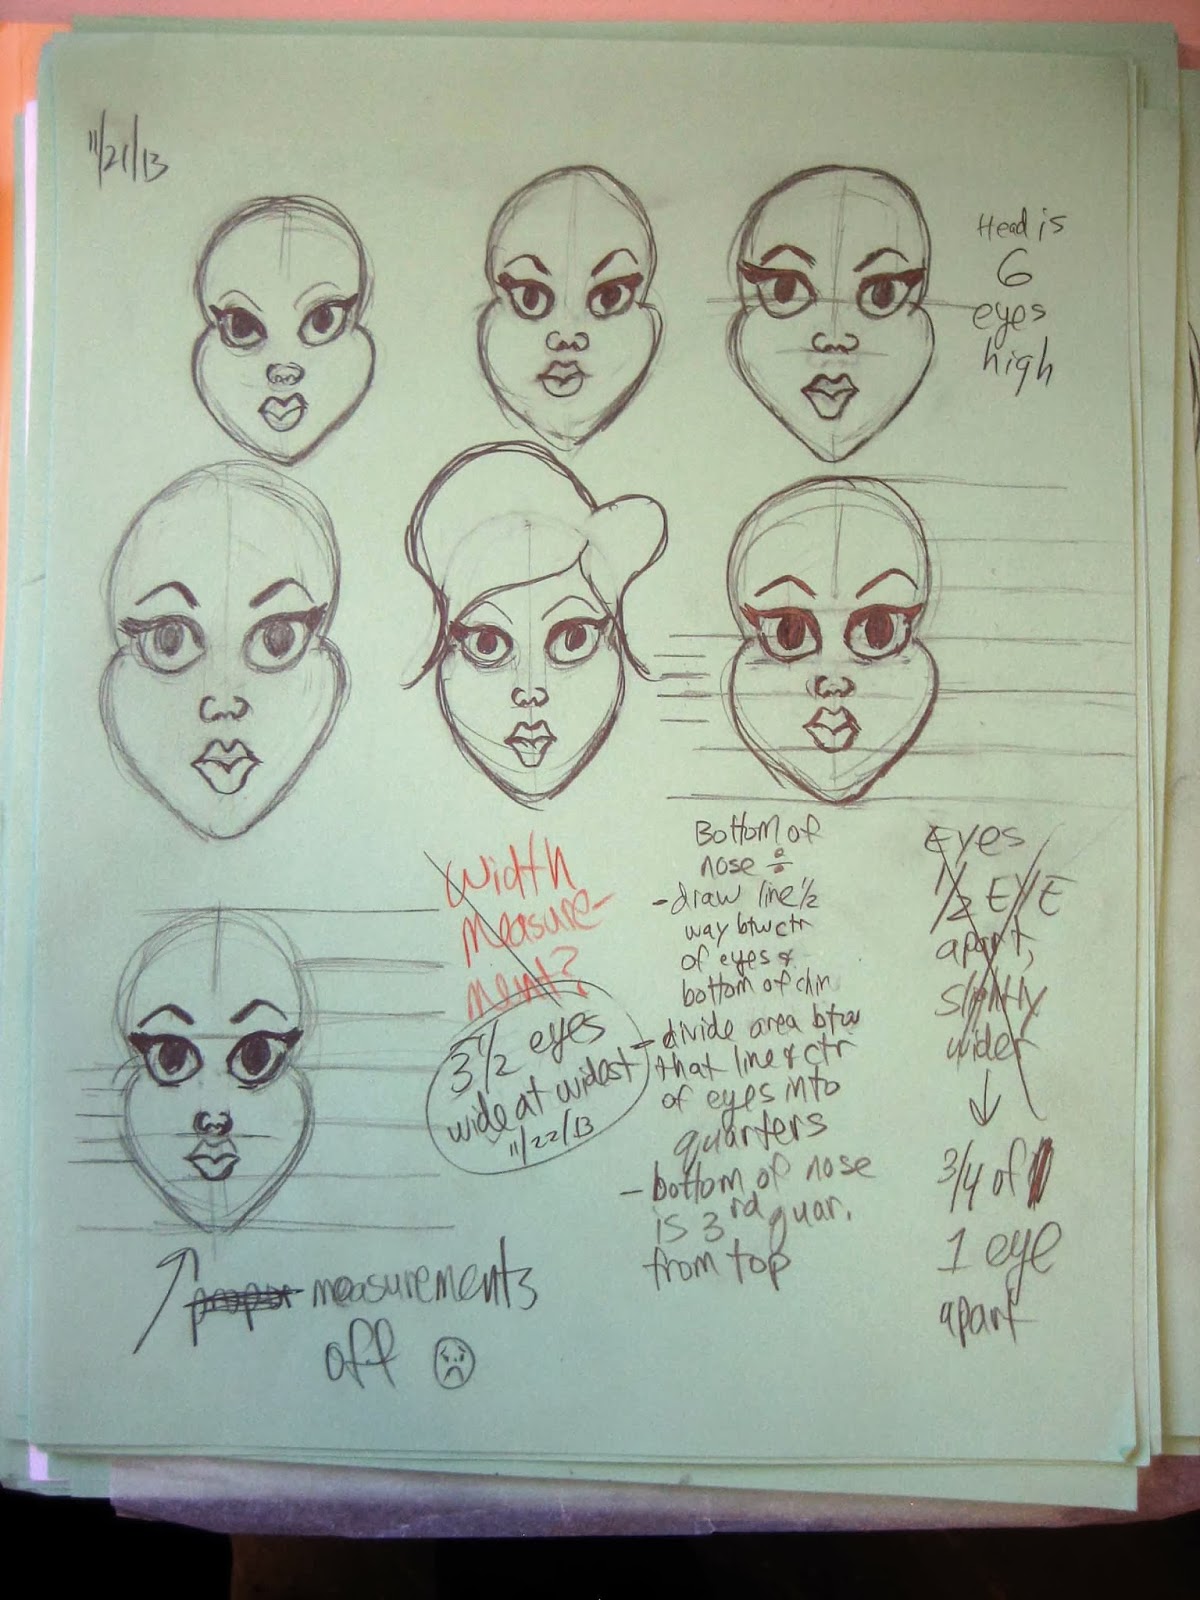 11/21/13
Head is
6
eyes
high
Width
Measure-
ment?
3 1/2 eyes
wide at widest
11/22/13
Bottom of
nose ÷
- draw line 1/2
way btw ctr
of eyes &
bottom of chin
- divide area btw
that line & ctr
of eyes into
quarters
- bottom of nose
is 3rd quar.
from top
Eyes
1/2 EYE
apart,
slightly
wider
3/4 of
1 eye
apart
measurements
off